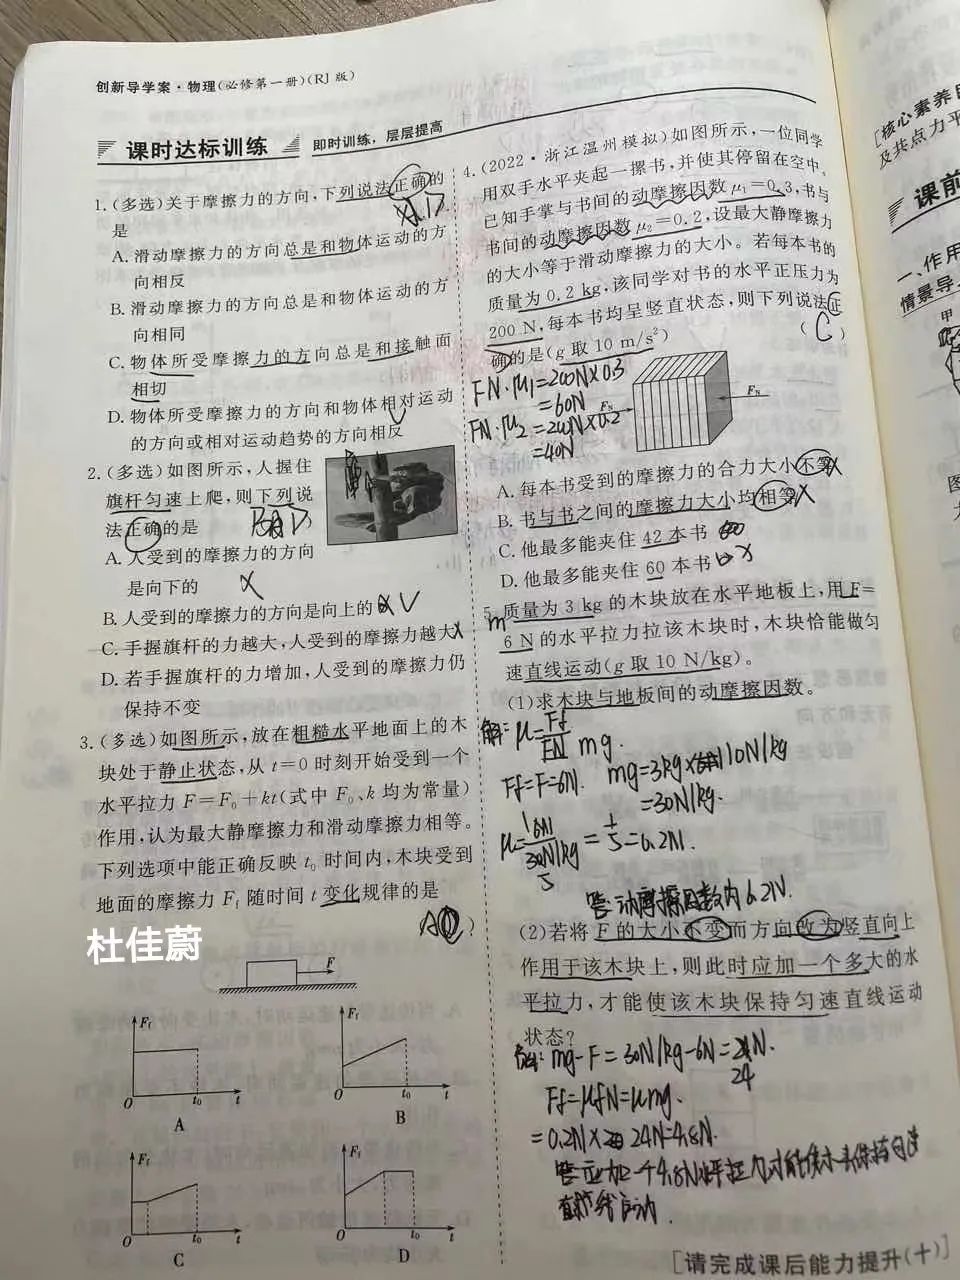 创新导学案·物理(必修第一册)(RJ版)
课时达标训练
即时训练，层层提高
1.(多选)关于摩擦力的方向,下列说法正确的
是
A.滑动摩擦力的方向总是和物体运动的方
向相反
B.滑动摩擦力的方向总是和物体运动的方
向相同
C.物体所受摩擦力的方向总是和接触面
相切
D.物体所受摩擦力的方向和物体相对运动
的方向或相对运动趋势的方向相反
2.(多选)如图所示,人握住
旗杆匀速上爬,则下列说
法正确的是
A.人受到的摩擦力的方向
是向下的
B.人受到的摩擦力的方向是向上的
C.手握旗杆的力越大,人受到的摩擦力越大
D.若手握旗杆的力增加,人受到的摩擦力仍
保持不变
3.(多选)如图所示,放在粗糙水平地面上的木
块处于静止状态,从t=0时刻开始受到一个
水平拉力F=F₀+kt(式中F₀、k均为常量)
作用,认为最大静摩擦力和滑动摩擦力相等。
下列选项中能正确反映t₀时间内,木块受到
地面的摩擦力Ff随时间t变化规律的是
杜佳蔚
F
Ff
O
t₀
t
A
Ff
O
t₀
t
B
Ff
O
t₀
t
C
Ff
O
t₀
t
D
4.(2022·浙江温州模拟)如图所示,一位同学
用双手水平夹起一摞书,并使其停留在空中,
已知手掌与书间的动摩擦因数μ₁=0.3,书与
书间的动摩擦因数μ₂=0.2,设最大静摩擦力
的大小等于滑动摩擦力的大小。若每本书的
质量为0.2 kg,该同学对书的水平正压力为
200 N,每本书均呈竖直状态,则下列说法正
确的是(g取10 m/s²)
( C )
FN·μ₁=200N×0.3
=60N
FN·μ₂=200N×0.2
=40N
FN
FN
A.每本书受到的摩擦力的合力大小不等 X
B.书与书之间的摩擦力大小均相等 X
C.他最多能夹住42本书
D.他最多能夹住60本书
5.质量为3 kg的木块放在水平地板上,用F=
6 N的水平拉力拉该木块时,木块恰能做匀
速直线运动(g取10 N/kg)。
(1)求木块与地板间的动摩擦因数。
解:μ=Ff/FN mg.
Ff=F=6N. mg=3kg×10N/kg
=30N/kg.
μ=6N/30N/kg=1/5=0.2N.
答:动摩擦因数为0.2N.
(2)若将F的大小不变而方向改为竖直向上
作用于该木块上,则此时应加一个多大的水
平拉力,才能使该木块保持匀速直线运动
状态?
解:mg-F=30N/kg-6N=24N.
Ff=μFN=μmg.
=0.2N×24N=4.8N.
答:应加一个4.8N水平拉力才能使木块保持匀速
直线运动.
[请完成课后能力提升(十)]
[核心素养
及共点力平
课前
一、作用
情景导
甲